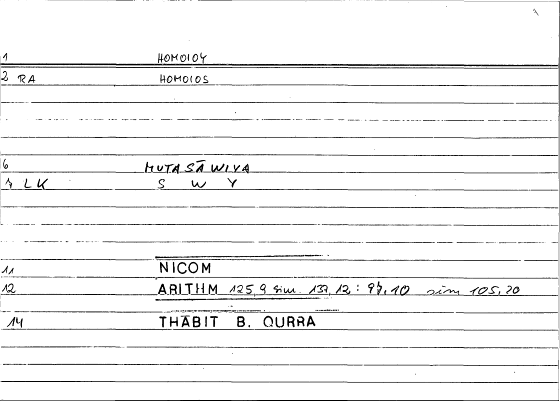 1 HOMOIOY
2 RA HOMOIOS
6 MUTASĀWIYA
7 LK S W Y
11 NICOM
12 ARITHM 125,9 sim. 133,12 : 97,10 sim 105,20
14 THĀBIT B. QURRA